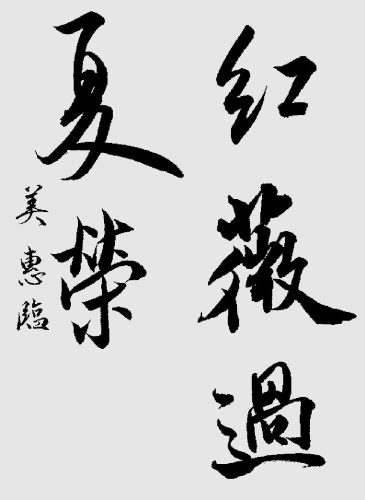 红薇過
夏榮
美惠臨